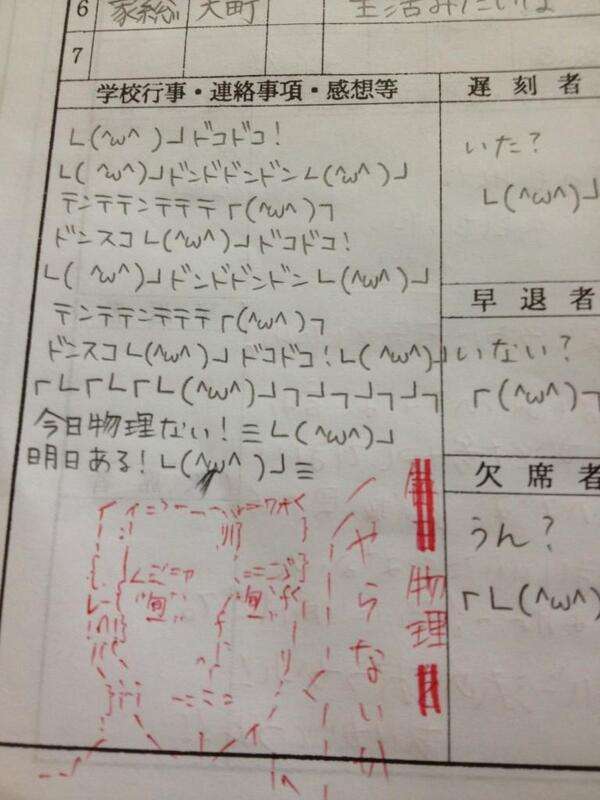 6 家総 大町 生活みたいな
7
学校行事・連絡事項・感想等
└(^ω^ )┘ドコドコ!
└( ^ω^)┘ドンドドンドン└(^ω^)┘
テンテテンテテテ┌(^ω^)┐
ドンスコ└(^ω^)┘ドコドコ!
└( ^ω^)┘ドンドドンドン└(^ω^)┘
テンテテンテテテ┌(^ω^)┐
ドンスコ└(^ω^)┘ドコドコ!└(^ω^)┘
┌└┌└┌└(^ω^)┘┐┘┐┘┐┘┐
今日物理ない!≡└(^ω^)┘
明日ある!└(^ω^)┘≡
物理
やらないか
遅刻者
いた?
└(^ω^)┘
早退者
いない?
┌(^ω^)┐
欠席者
うん?
┌└(^ω^)